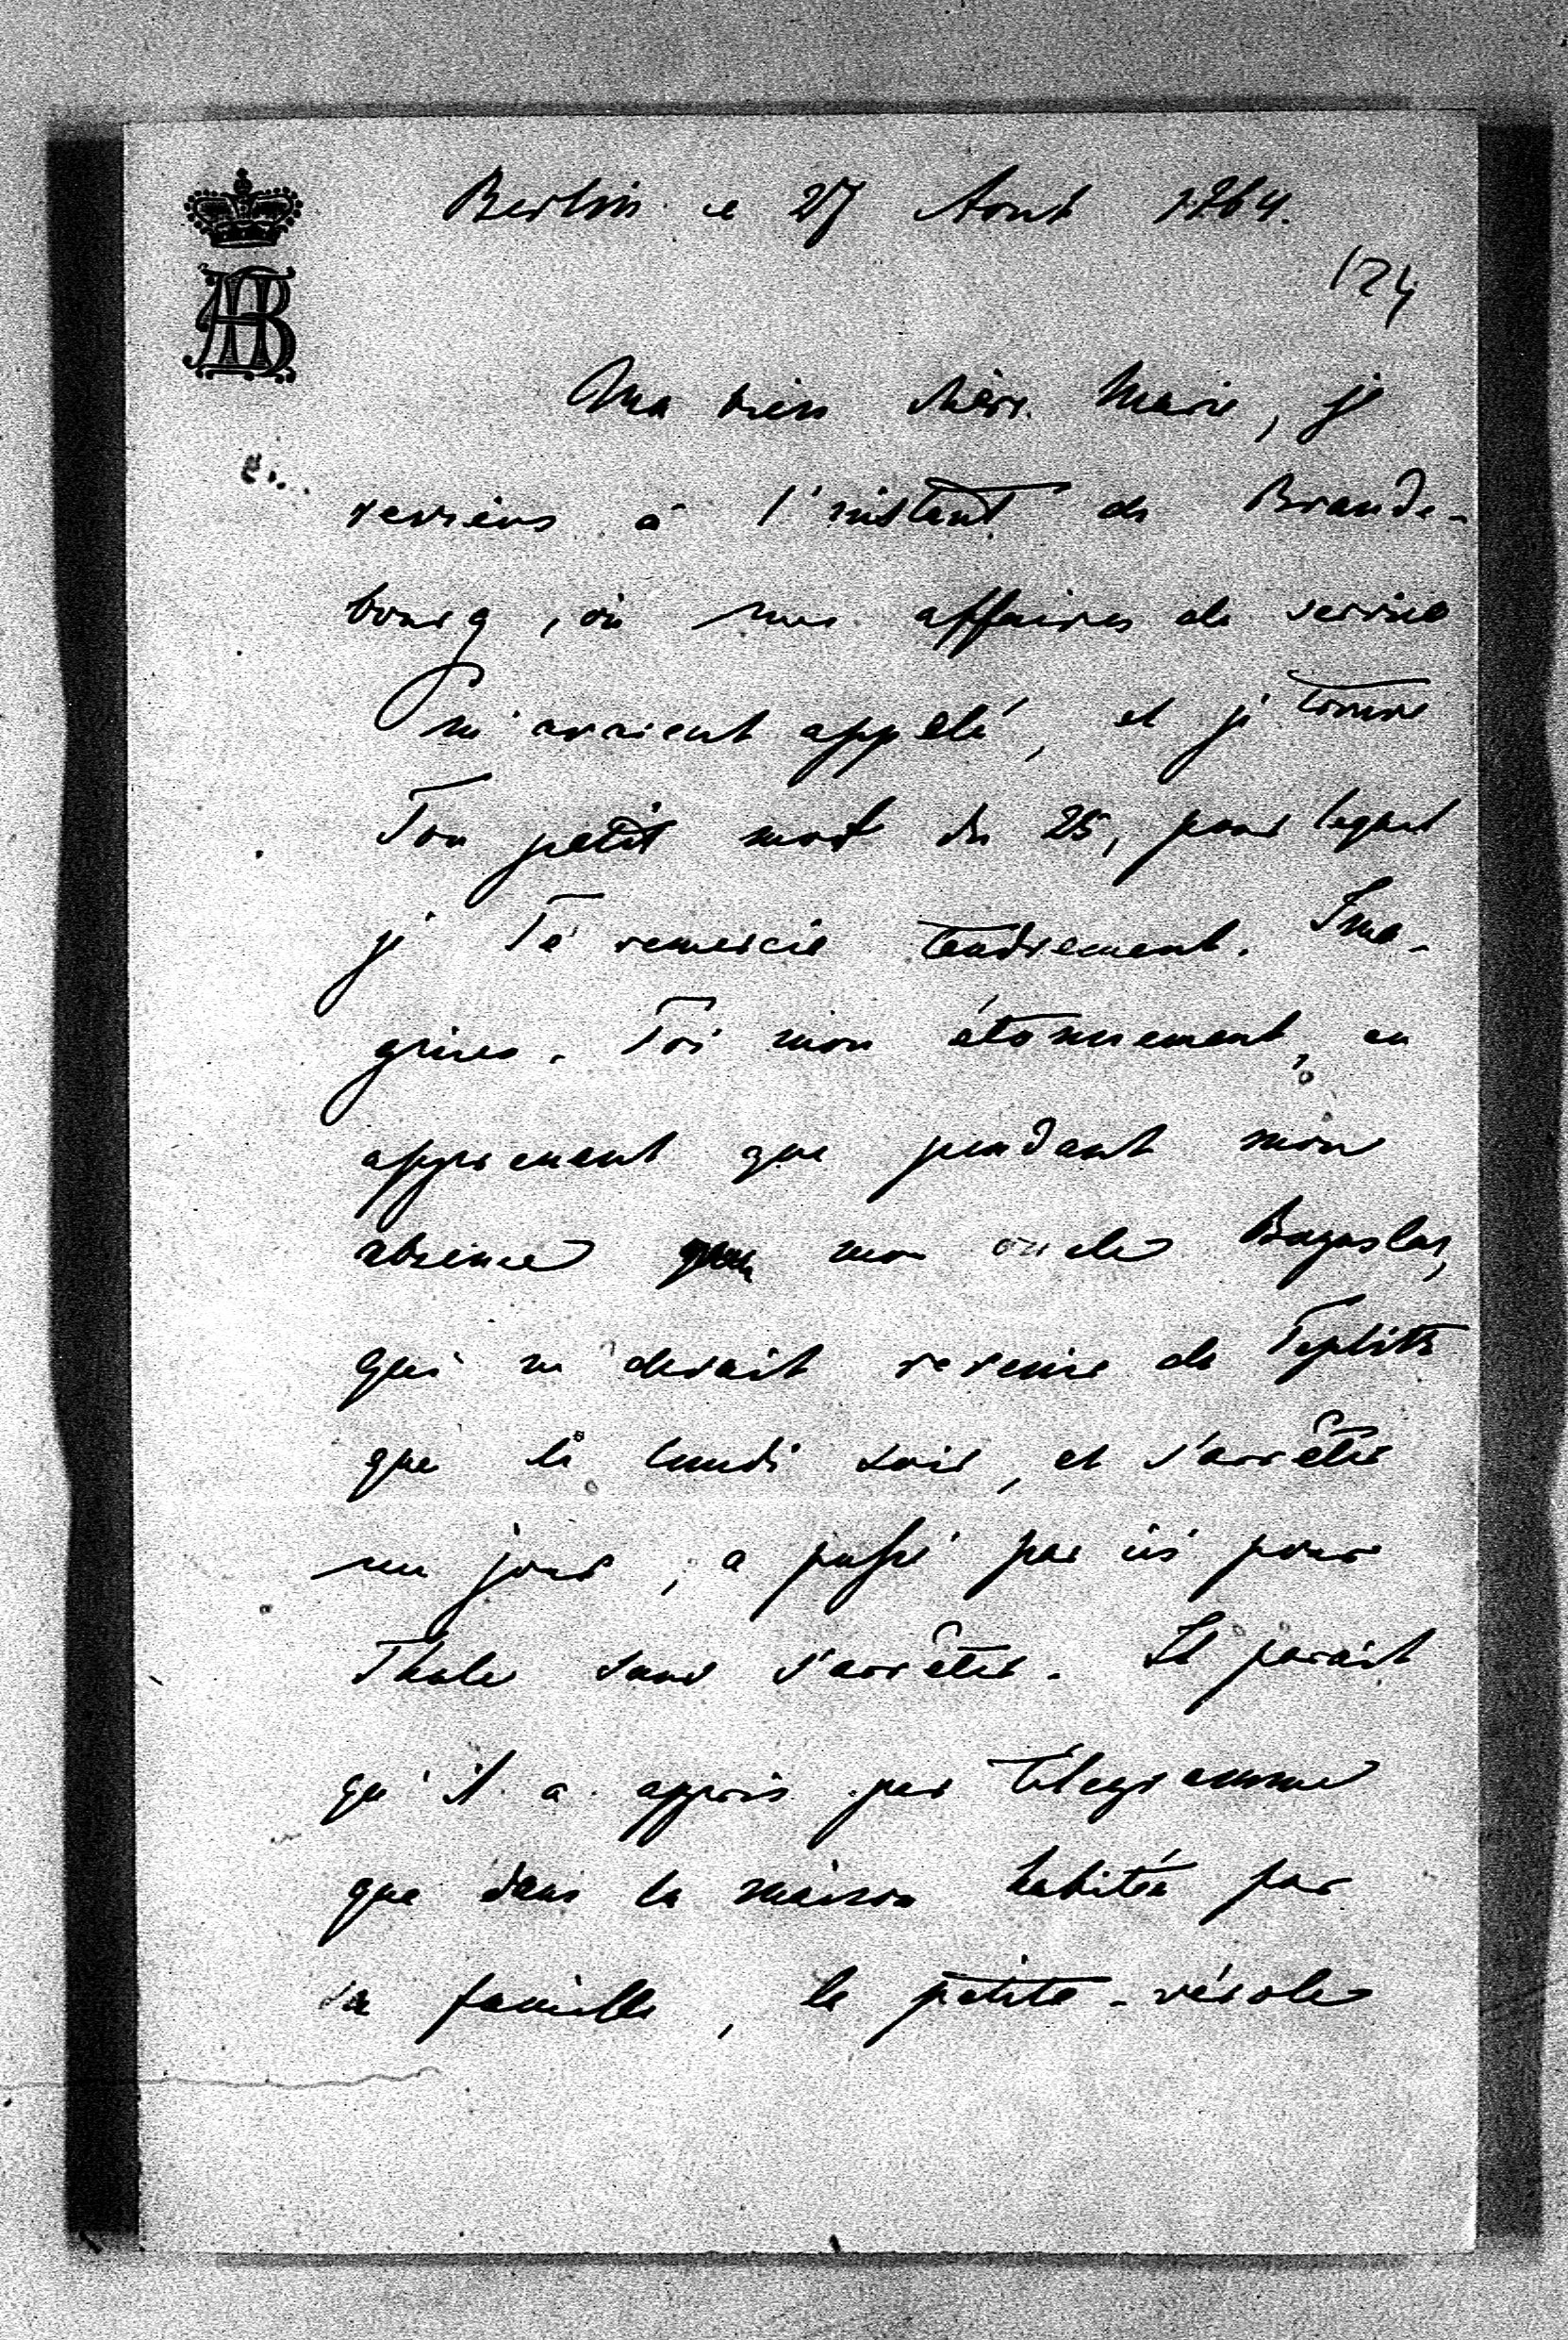 Berlin ce 27 Aout 1864.
124
Ma bien chère Marie, je
reviens à l'instant de Brande-
bourg, où mes affaires de service
m'avaient appelé, et je trouve
Ton petit mot du 25, pour lequel
je Te remercie tendrement. Ima-
gines-Toi mon étonnement, en
apprenant que pendant mon
absence mon oncle Boguslav,
qui ne devait revenir de Teplitz
que le lundi soir, et s'arrêter
un jour, a passé par ici pour
Thale sans s'arrêter. Il parait
qu'il a appris par télegramme
que dans la maison habitée par
sa famille, la petite-vérole